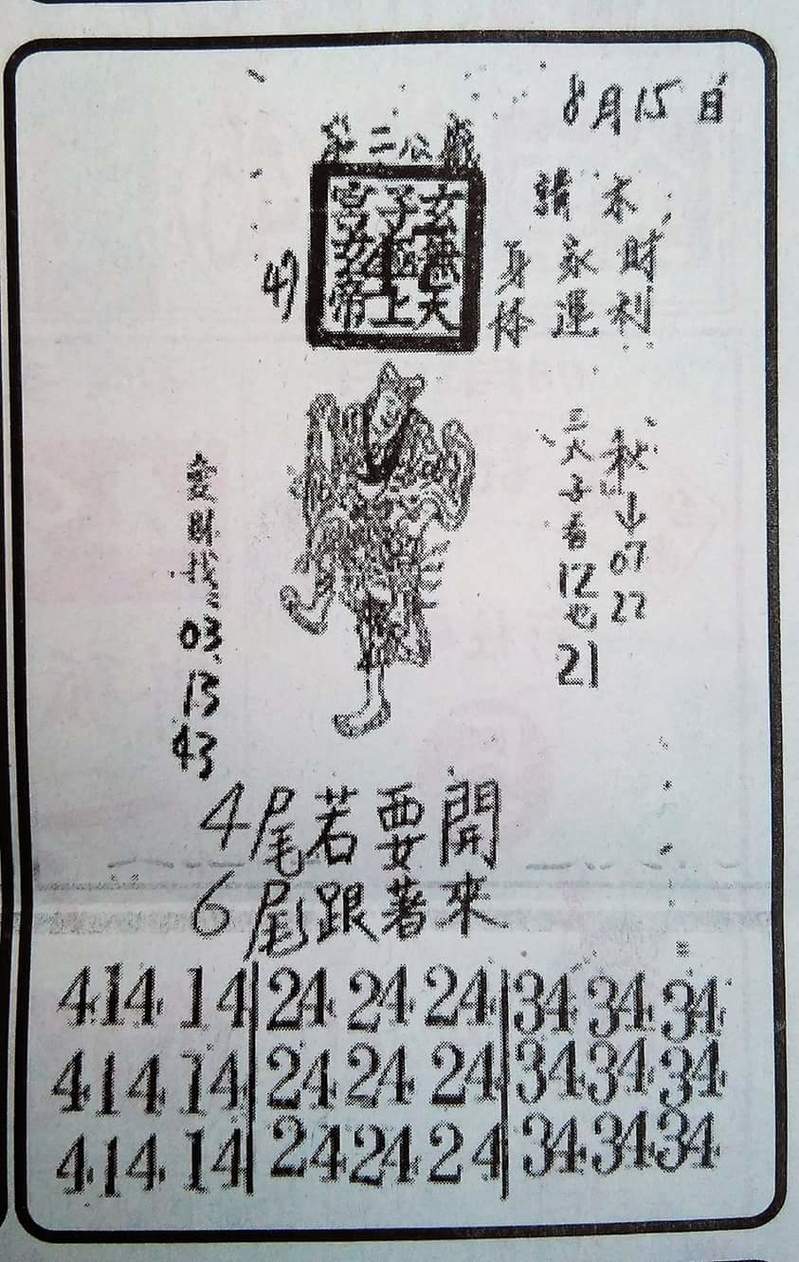 8月15日
第二公歲
玄子宮
天上帝
49
木財利
請永運
身体
秋↓07
22
三太子看12也21
愛財找
03
13
43
4尾若要開
6尾跟著來
4 14 14 24 24 24 34 34 34
4 14 14 24 24 24 34 34 34
4 14 14 24 24 24 34 34 34